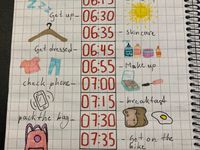 06:15
Get up - 06:30
06:35 - skincare
Get dressed - 06:45
06:55 - Make up
check phone - 07:00
07:15 - breakfast
pack the bag - 07:30
07:35 - Got on the
bike